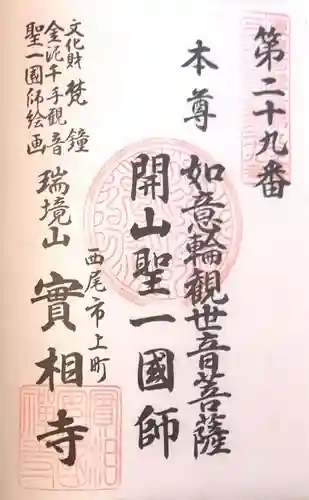 第二十九番
本尊
如意輪觀世音菩薩
開山聖一國師
西尾市上町
瑞境山 實相寺
文化財 梵鐘
金泥千手觀音
聖一國師絵画